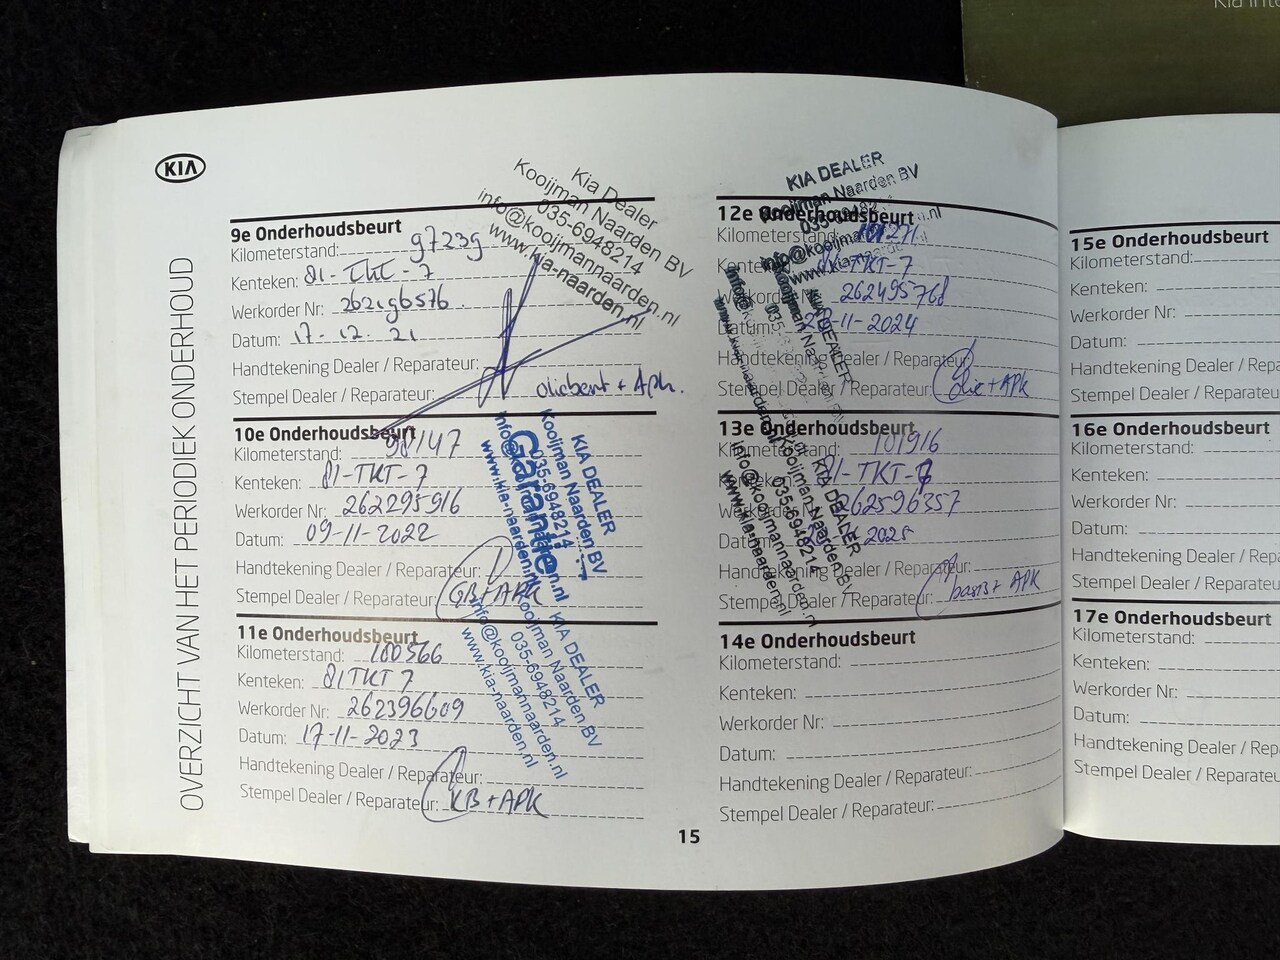 Kia Inte
KIA
OVERZICHT VAN HET PERIODIEK ONDERHOUD
9e Onderhoudsbeurt
Kilometerstand: 97239
Kenteken: 81-TKT-7
Werkorder Nr: 262196576
Datum: 17-12-21
Handtekening Dealer / Reparateur:
Stempel Dealer / Reparateur: oliebeurt + Apk.
Kia Dealer
Kooijman Naarden BV
035-6948214
info@kooijmannaarden.nl
www.kia-naarden.nl
10e Onderhoudsbeurt
Kilometerstand: 98147
Kenteken: 81-TKT-7
Werkorder Nr: 262295916
Datum: 09-11-2022
Handtekening Dealer / Reparateur:
Stempel Dealer / Reparateur: GB+APK
KIA DEALER
Kooijman Naarden BV
035-6948214
info@kooijmannaarden.nl
www.kia-naarden.nl
Garantie
11e Onderhoudsbeurt
Kilometerstand: 100566
Kenteken: 81TKT7
Werkorder Nr: 262396609
Datum: 17-11-2023
Handtekening Dealer / Reparateur:
Stempel Dealer / Reparateur: KB+APK
KIA DEALER
Kooijman Naarden BV
035-6948214
info@kooijmannaarden.nl
www.kia-naarden.nl
12e Onderhoudsbeurt
Kilometerstand: 101271
Kenteken: 81-TKT-7
Werkorder Nr: 262495768
Datum: -11-2024
Handtekening Dealer / Reparateur:
Stempel Dealer / Reparateur: Olie+APK
KIA DEALER
Kooijman Naarden BV
035-6948214
info@kooijmannaarden.nl
www.kia-naarden.nl
13e Onderhoudsbeurt
Kilometerstand: 101916
Kenteken: 81-TKT-7
Werkorder Nr: 262596357
Datum: 2025
Handtekening Dealer / Reparateur:
Stempel Dealer / Reparateur: basis+ APK
KIA DEALER
Kooijman Naarden BV
035-6948214
info@kooijmannaarden.nl
www.kia-naarden.nl
14e Onderhoudsbeurt
Kilometerstand:
Kenteken:
Werkorder Nr:
Datum:
Handtekening Dealer / Reparateur:
Stempel Dealer / Reparateur:
15
15e Onderhoudsbeurt
Kilometerstand:
Kenteken:
Werkorder Nr:
Datum:
Handtekening Dealer / Reparateur:
Stempel Dealer / Reparateur:
16e Onderhoudsbeurt
Kilometerstand:
Kenteken:
Werkorder Nr:
Datum:
Handtekening Dealer / Reparateur:
Stempel Dealer / Reparateur:
17e Onderhoudsbeurt
Kilometerstand:
Kenteken:
Werkorder Nr:
Datum:
Handtekening Dealer / Repara
Stempel Dealer / Reparateur